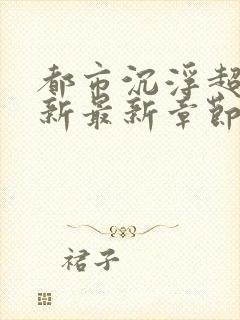 都市沉浮超
新最新章節
裙子